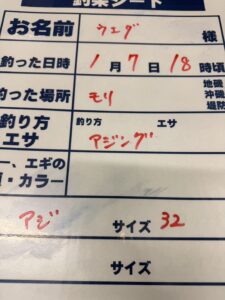 釣果シート
お名前 ウエダ 様
釣った日時 1月7日18時頃
釣った場所 モリ 地磯
沖磯
堤防
釣り方 釣り方 エサ
エサ アジング
ー、エギの
・カラー
アジ サイズ 32
サイズ